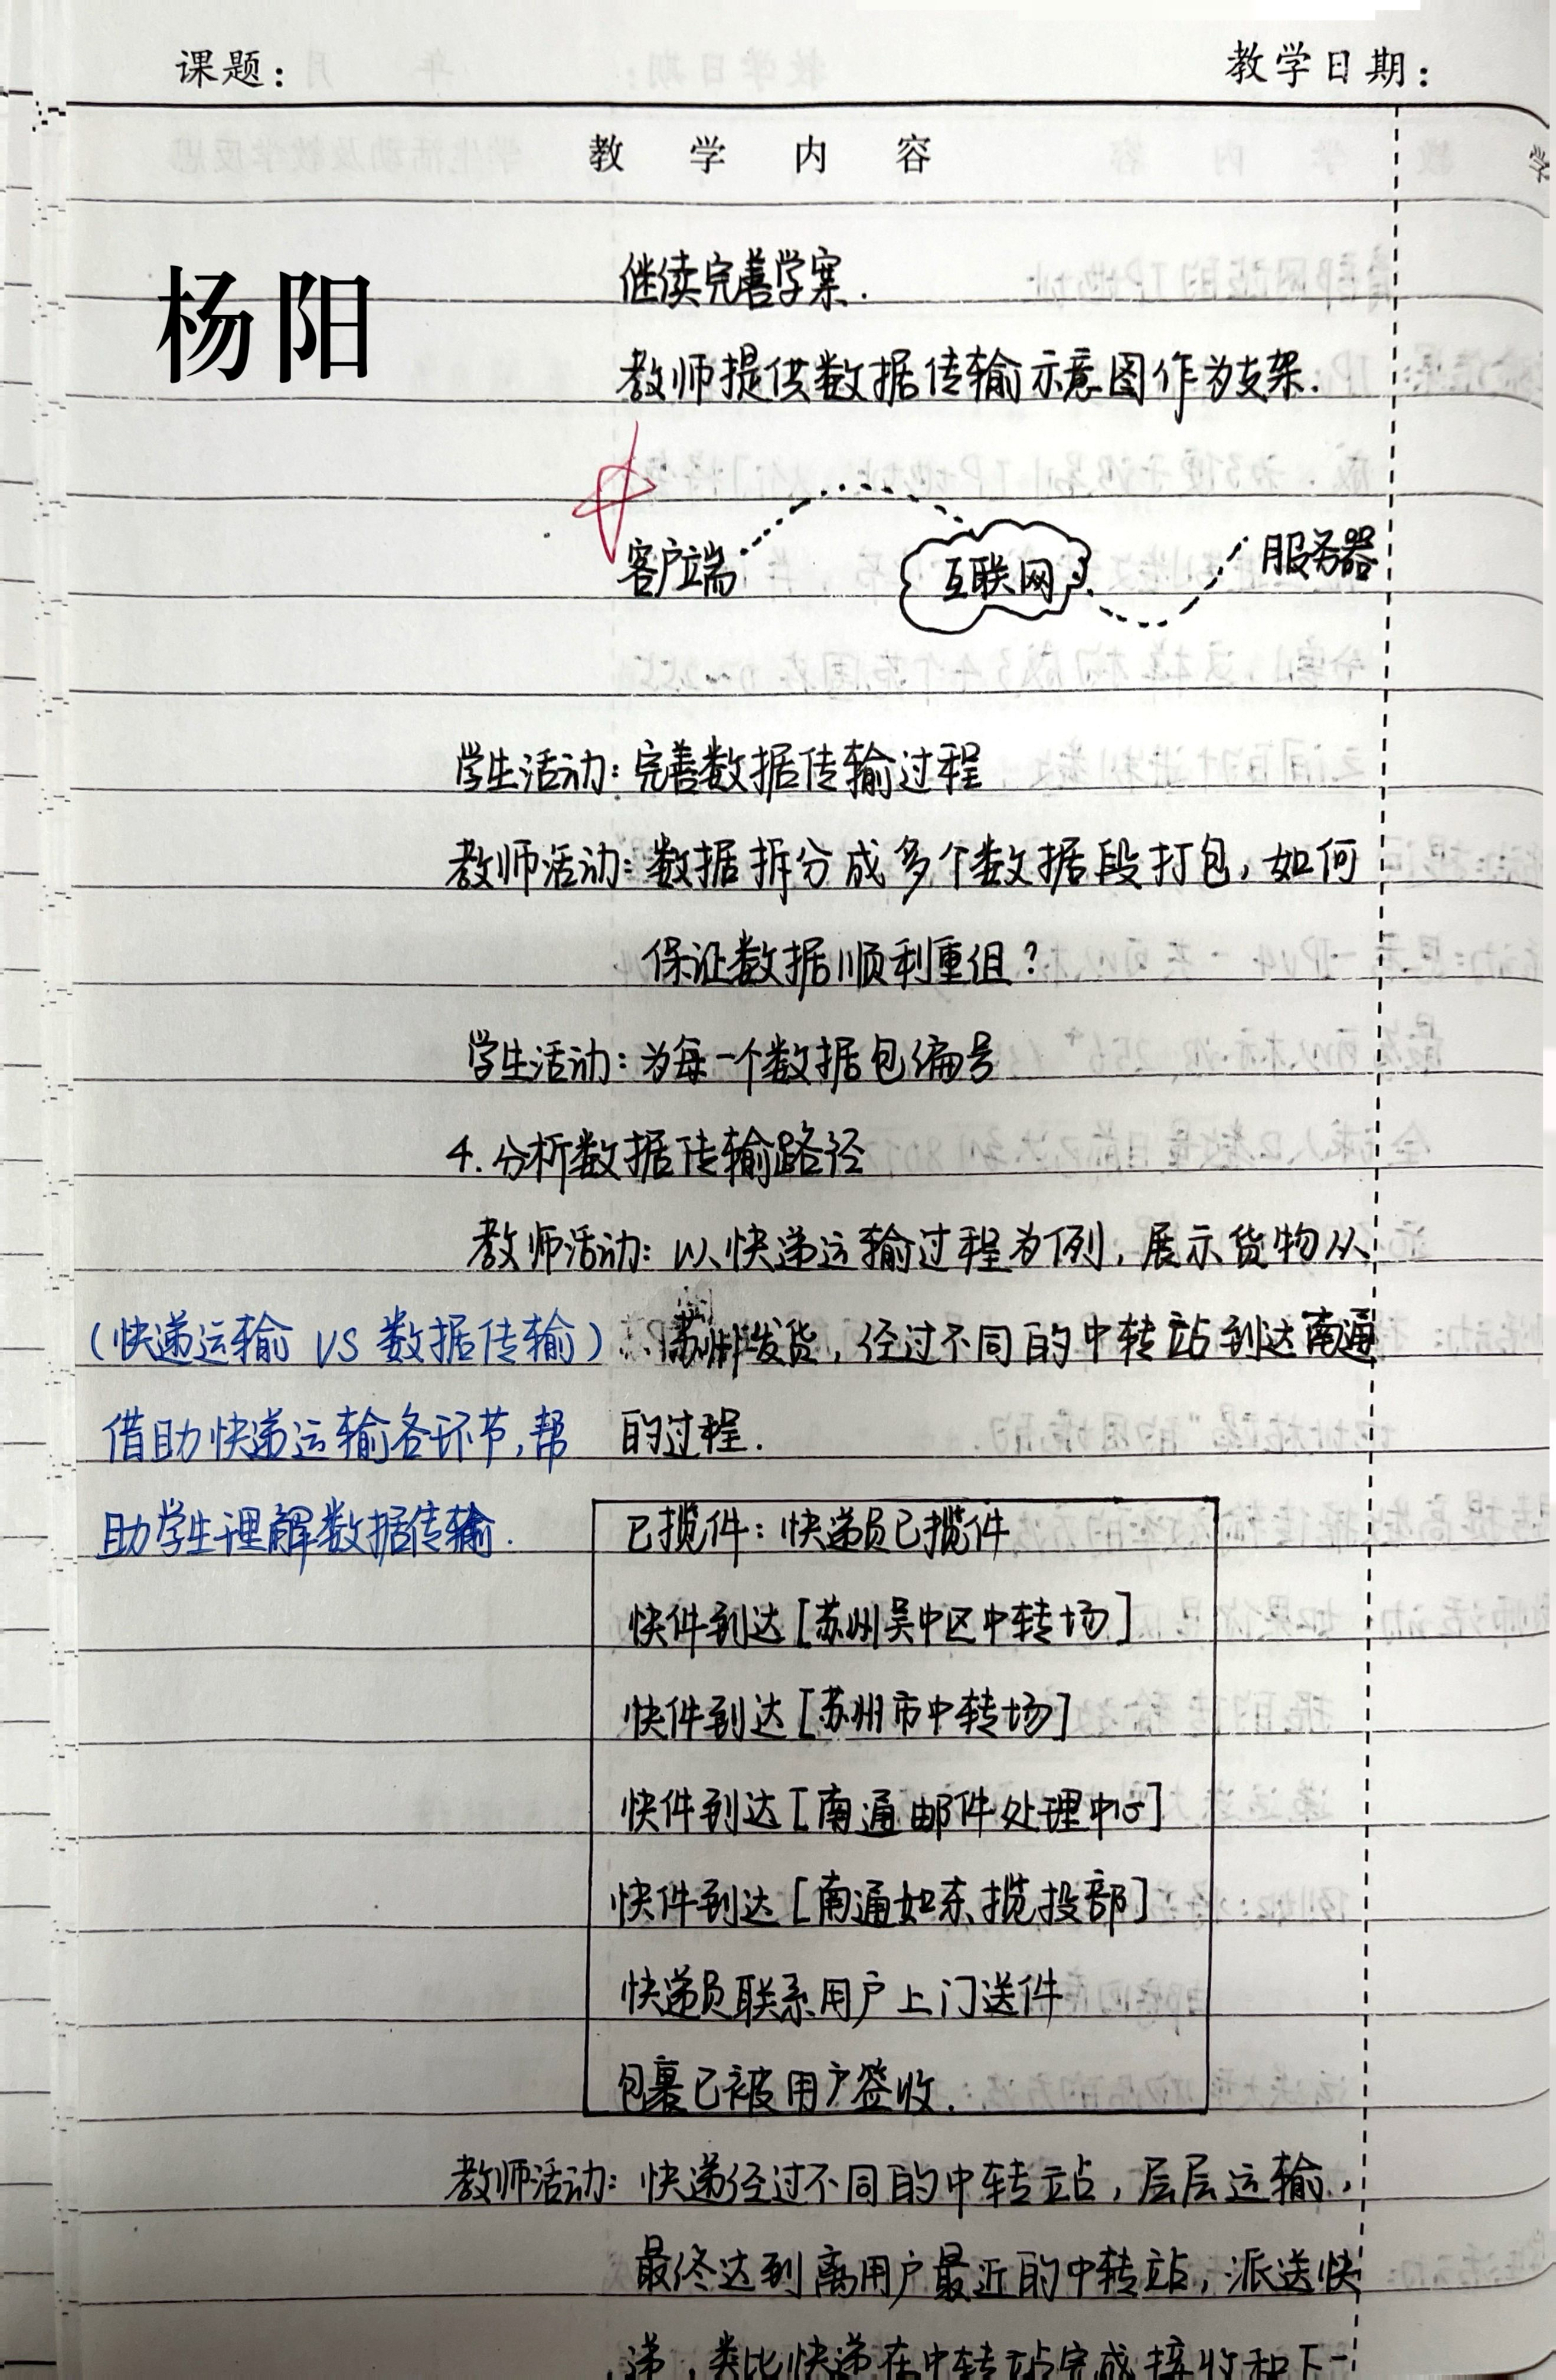 课题：
教学日期：
教学内容
杨阳
继续完善学案.
教师提供数据传输示意图作为支架.
客户端
互联网
服务器
学生活动：完善数据传输过程
教师活动：数据拆分成多个数据段打包，如何
保证数据顺利重组？
学生活动：为每一个数据包编号
4.分析数据传输路径
教师活动：以快递运输过程为例，展示货物从
苏州发货，经过不同的中转站到达南通
的过程.
(快递运输 VS 数据传输)
借助快递运输各环节,帮
助学生理解数据传输.
已揽件：快递员已揽件
快件到达[苏州吴中区中转场]
快件到达[苏州市中转场]
快件到达[南通邮件处理中心]
快件到达[南通如东揽投部]
快递员联系用户上门送件
包裹已被用户签收.
教师活动：快递经过不同的中转站，层层运输，
最终达到离用户最近的中转站，派送快
递，类比快递在中转站完成接收和下一